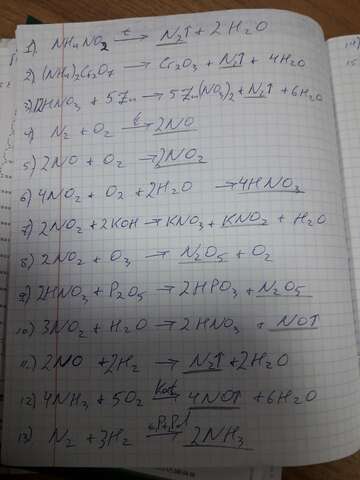 1) NH₄NO₂ —t→ N₂↑ + 2H₂O
2) (NH₄)₂Cr₂O₇ → Cr₂O₃ + N₂↑ + 4H₂O
3) 12HNO₃ + 5Zn → 5Zn(NO₃)₂ + N₂↑ + 6H₂O
4) N₂ + O₂ —t→ 2NO
5) 2NO + O₂ → 2NO₂
6) 4NO₂ + O₂ + 2H₂O → 4HNO₃
7) 2NO₂ + 2KOH → KNO₃ + KNO₂ + H₂O
8) 2NO₂ + O₃ → N₂O₅ + O₂
9) 2HNO₃ + P₂O₅ → 2HPO₃ + N₂O₅
10) 3NO₂ + H₂O → 2HNO₃ + NO↑
11) 2NO + 2H₂ → N₂↑ + 2H₂O
12) 4NH₃ + 5O₂ —Kat→ 4NO↑ + 6H₂O
13) N₂ + 3H₂ → 2NH₃
14)
15